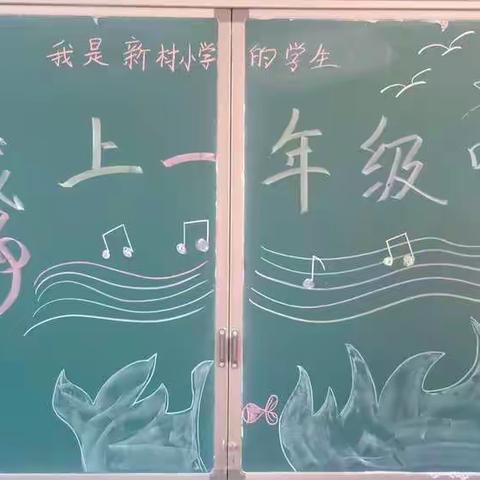 我是新村小学的学生
我上一年级